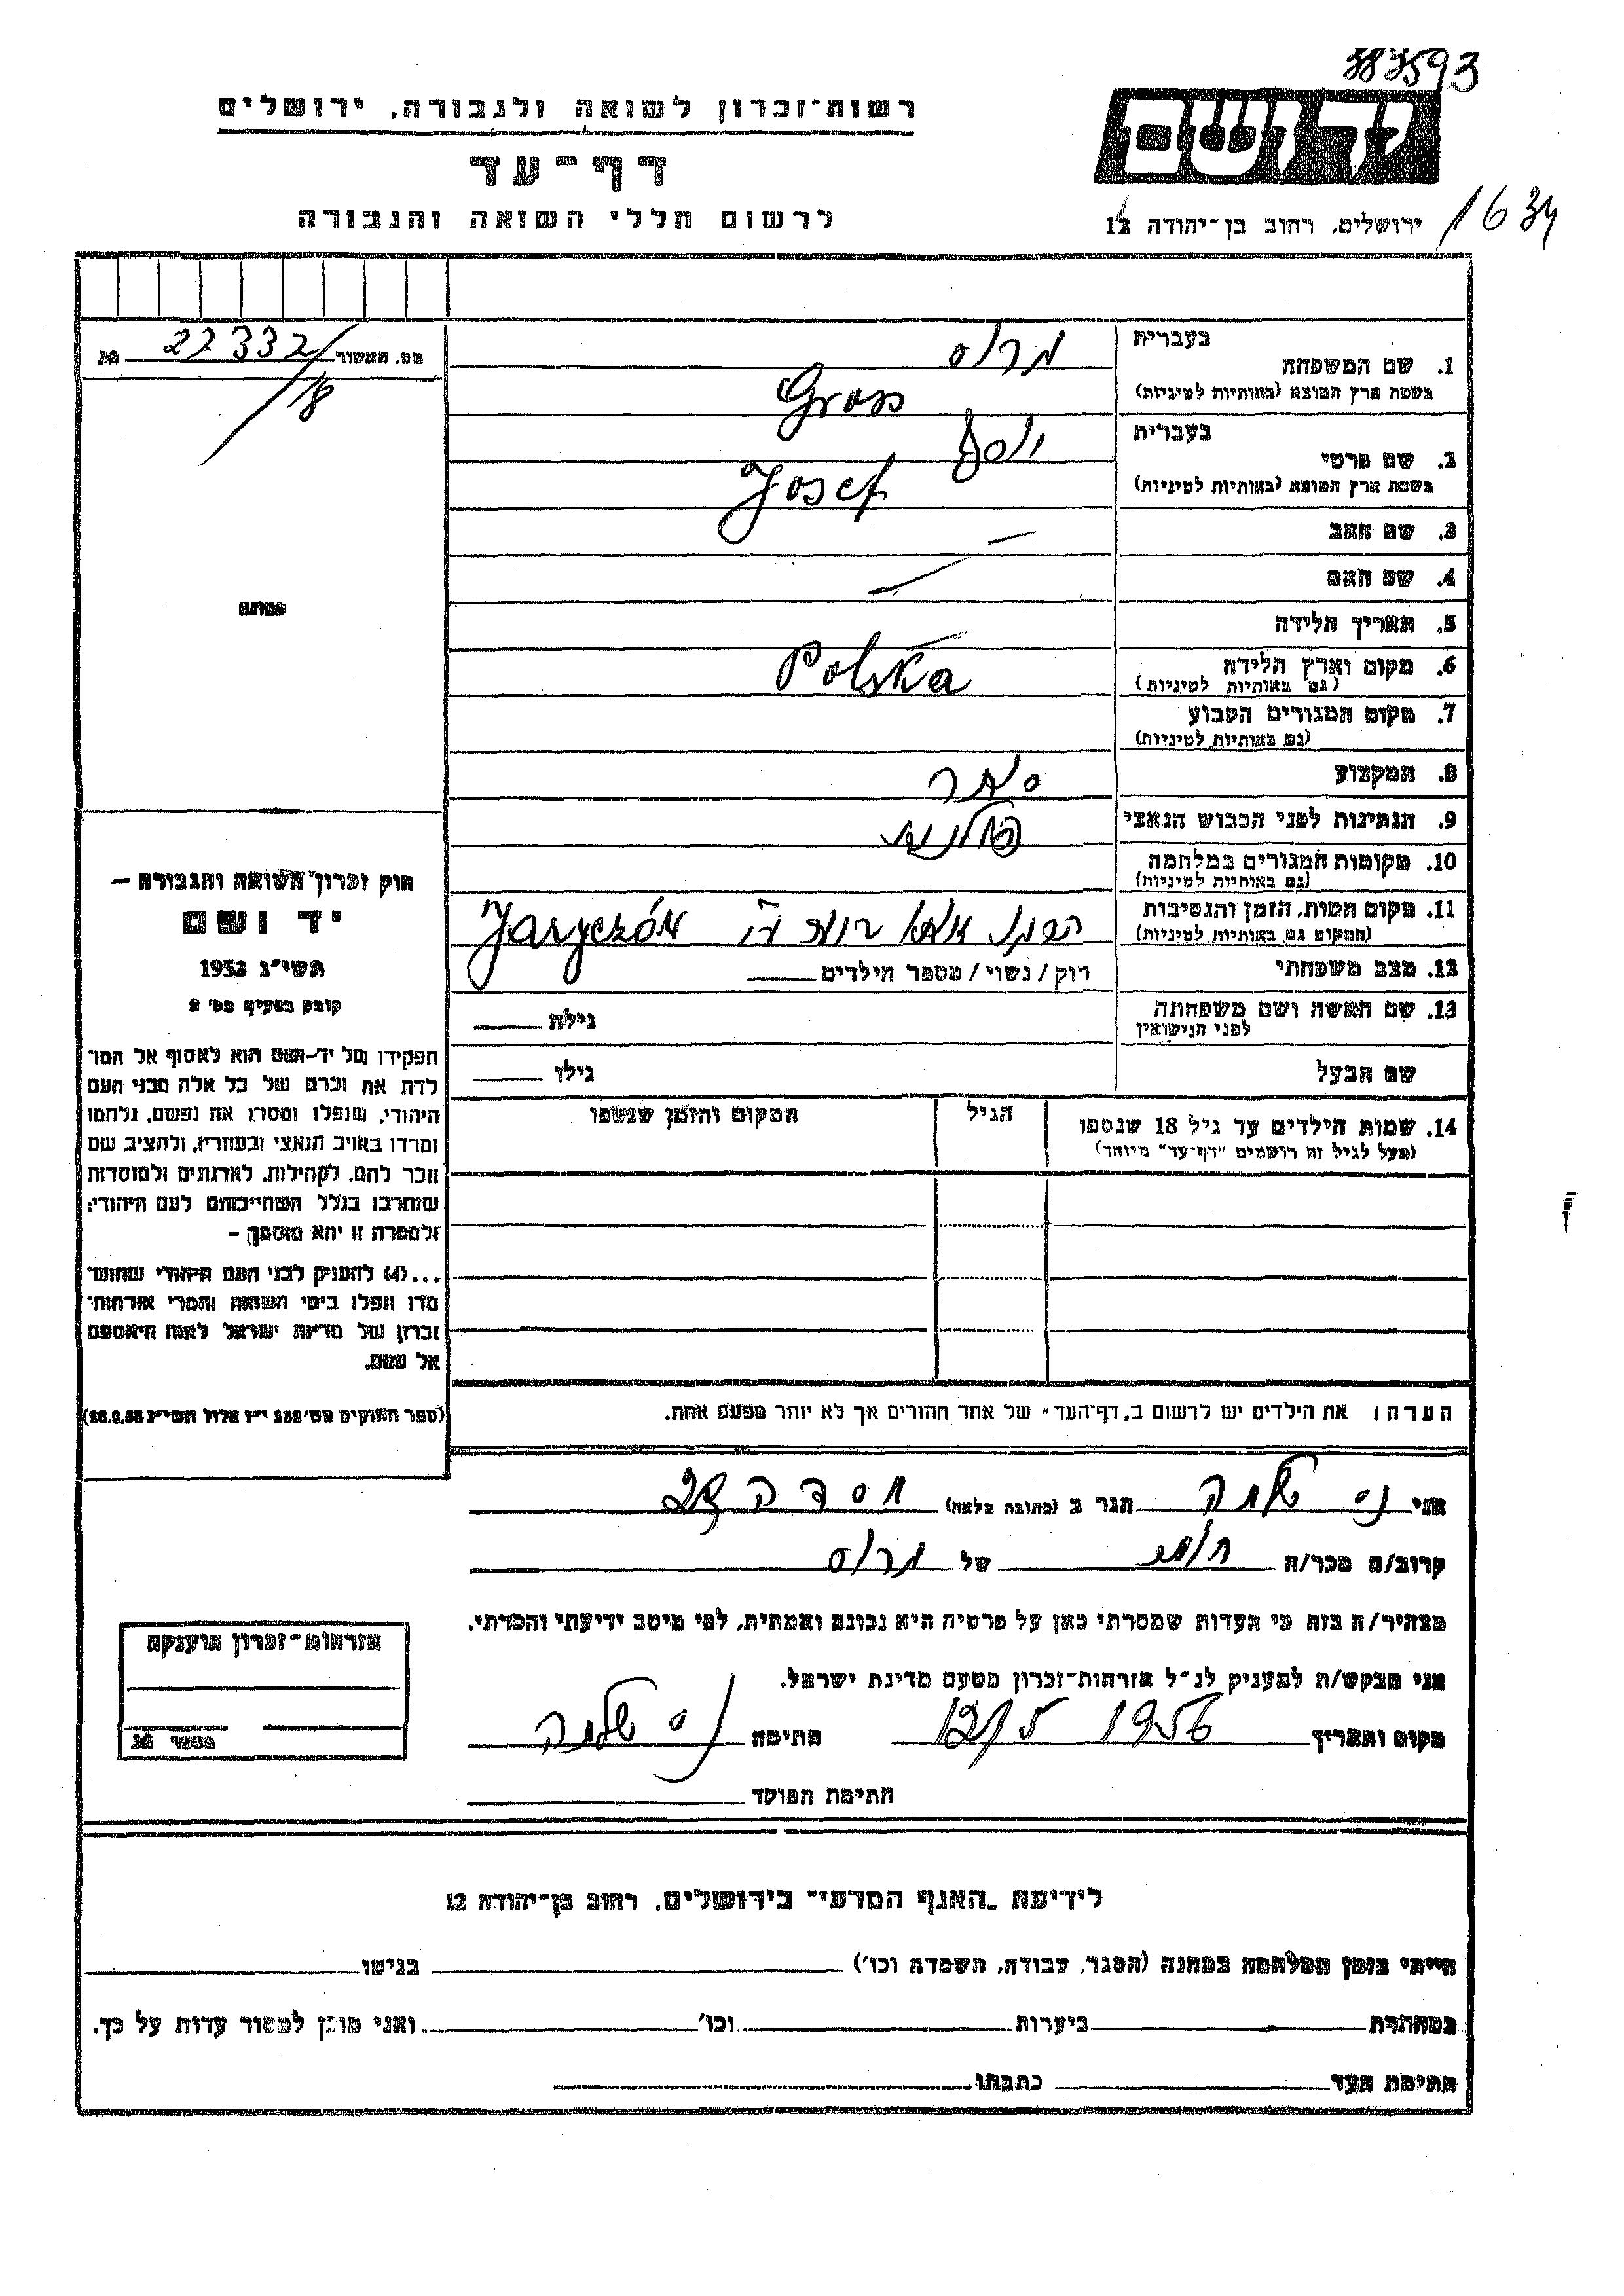 383593
רשות־זכרון לשואה ולגבורה, ירושלים
יד ושם
דף־עד
לרשום חללי השואה והגבורה
ירושלים, רחוב בן־יהודה 12
1634
מס. האשור 22332/18 מג
בעברית
1. שם המשפחה גרוס
בשפת ארץ המוצא (באותיות לטיניות) Gross
בעברית
2. שם פרטי יוסף
בשפת ארץ המוצא (באותיות לטיניות) Josef
3. שם האב —
4. שם האם —
5. תאריך הלידה —
6. מקום וארץ הלידה Polska
(גם באותיות לטיניות)
7. מקום המגורים הקבוע
(גם באותיות לטיניות)
8. המקצוע סוחר
9. הנתינות לפני הכבוש הנאצי פולנית
10. מקומות המגורים במלחמה
(גם באותיות לטיניות)
11. מקום המות, הזמן והנסיבות Jaryczów
(המקום גם באותיות לטיניות)
12. מצב משפחתי רוק / נשוי / מספר הילדים
13. שם האשה ושם משפחתה גילה
לפני הנישואין
שם הבעל גילו
14. שמות הילדים עד גיל 18 שנספו הגיל המקום והזמן שנספו
(מעל לגיל זה רושמים "דף־עד" מיוחד)
תמונה
חוק זכרון השואה והגבורה –
יד ושם
תשי"ג 1953
קובע בסעיף מס' 2
תפקידו של יד-ושם הוא לאסוף אל המו
לדת את זכרם של כל אלה מבני העם
היהודי, שנפלו ומסרו את נפשם, נלחמו
ומרדו באויב הנאצי ובעוזריו, ולהציב שם
וזכר להם, לקהילות, לארגונים ולמוסדות
שנחרבו בגלל השתייכותם לעם היהודי;
ולמטרה זו יהא מוסמך –
...(4) להעניק לבני העם היהודי שהוש
מדו ונפלו בימי השואה והמרי אזרחות־
זכרון של מדינת ישראל לאות היאספם
אל עמם.
(ספר החוקים מס' 132 י"ז אלול תשי"ג 28.8.53)
הערה: את הילדים יש לרשום ב„דף־העד" של אחד ההורים אך לא יותר מפעם אחת.
אני נס שלמה הגר ב (כתובת מלאה)
קרוב/ה מכר/ה של גרוס
מצהיר/ה בזה כי העדות שמסרתי כאן על פרטיה היא נכונה ואמתית, לפי מיטב ידיעתי והכרתי.
אני מבקש/ת להעניק לנ"ל אזרחות־זכרון מטעם מדינת ישראל.
מקום ותאריך 12/5 1956 חתימה נס שלמה
חתימת הפוקד
אזרחות־זכרון הוענקה
מספר מג
לידיעת „האגף המדעי" בירושלים, רחוב בן־יהודה 12
הייתי בזמן המלחמה במחנה (הסגר, עבודה, השמדה וכו') בגיטו
במחתרת ביערות וכו' ואני מוכן למסור עדות על כך.
חתימת העד כתבתו